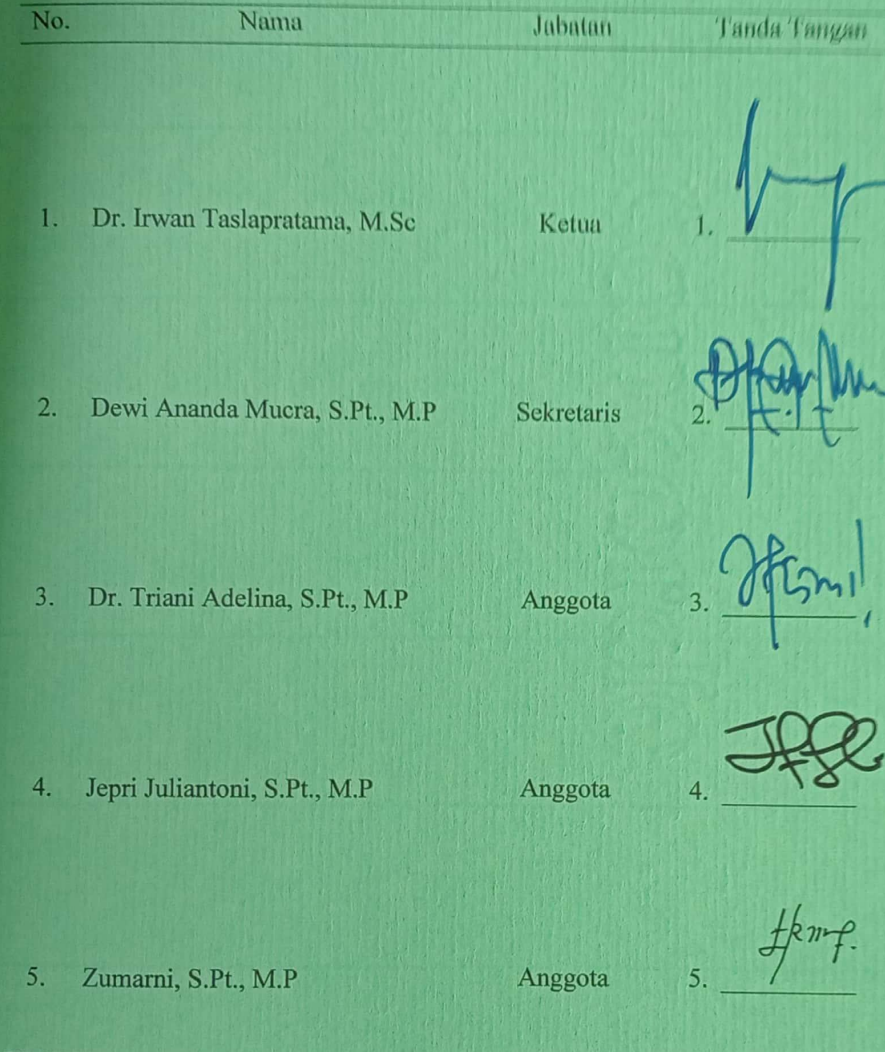 No. Nama Jabatan Tanda Tangan
1. Dr. Irwan Taslapratama, M.Sc Ketua 1.
2. Dewi Ananda Mucra, S.Pt., M.P Sekretaris 2.
3. Dr. Triani Adelina, S.Pt., M.P Anggota 3.
4. Jepri Juliantoni, S.Pt., M.P Anggota 4.
5. Zumarni, S.Pt., M.P Anggota 5.